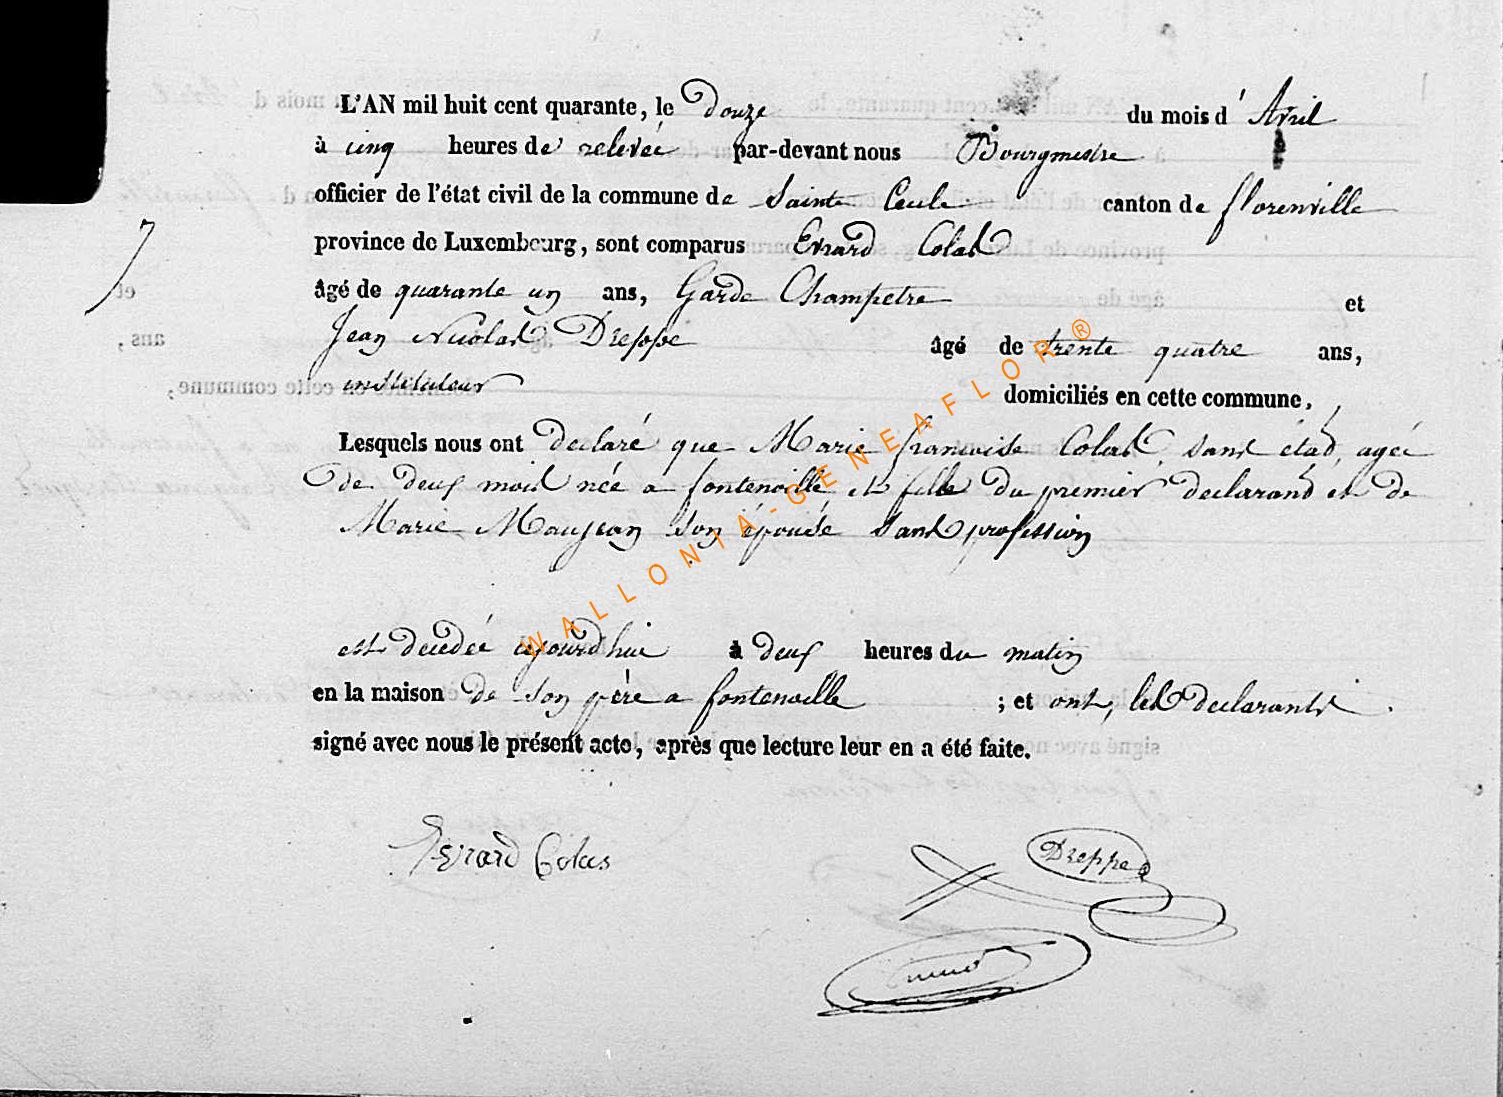 L'AN mil huit cent quarante, le douze du mois d' Avril
à cinq heures de relevée par-devant nous Bourgmestre
officier de l'état civil de la commune de Sainte Cecile canton de florenville
province de Luxembourg, sont comparus Evrard Colas
7
âgé de quarante un ans, Garde Champetre et
Jean Nicolas Dreppe âgé de trente quatre ans,
instituteur domiciliés en cette commune,
Lesquels nous ont declaré que Marie francoise Colas, sans état, agée
de deux mois née a fontenoille et fille du premier declarand et de
Marie Maujean son épouse sans profession
est decedée aujourd'hui à deux heures du matin
en la maison de son père a fontenoille ; et ont, les declarants
signé avec nous le présent acte, après que lecture leur en a été faite.
Evrard Colas
Dreppe
WALLONIA-GENEAFLOR®